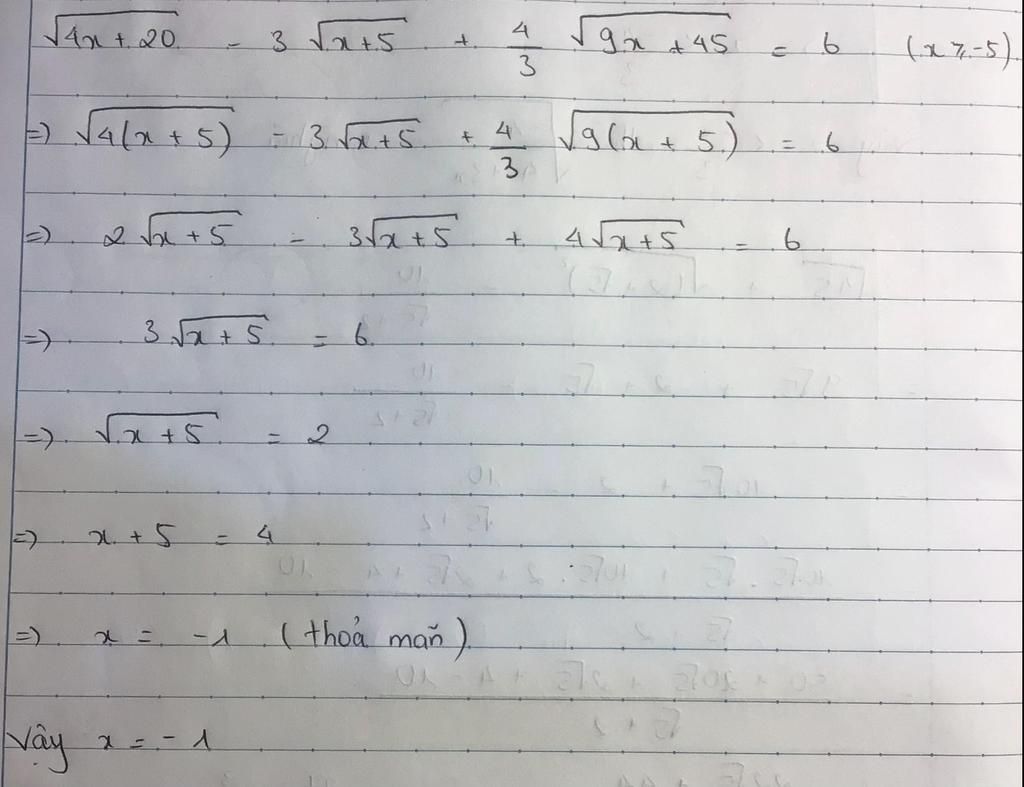 √(4x + 20) - 3 √(x+5) + 4/3 √(9x + 45) = 6 (x ≥ -5)
=> √(4(x + 5)) - 3 √(x+5) + 4/3 √(9(x + 5)) = 6
=> 2 √(x + 5) - 3√(x + 5) + 4√(x + 5) = 6
=> 3 √(x + 5) = 6
=> √(x + 5) = 2
=> x + 5 = 4
=> x = -1 (thoả mãn)
Vậy x = -1